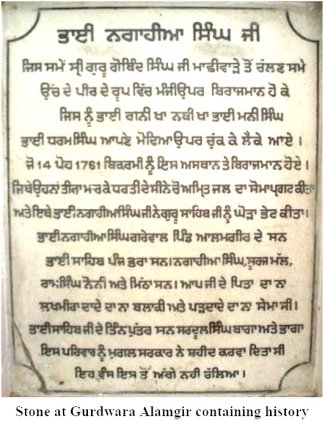 ਭਾਈ ਨਗਾਹੀਆ ਸਿੰਘ ਜੀ
ਜਿਸ ਸਮੇਂ ਸ੍ਰੀ ਗੁਰੂ ਗੋਬਿੰਦ ਸਿੰਘ ਜੀ ਮਾਛੀਵਾੜੇ ਤੋਂ ਚੱਲਣ ਸਮੇ
ਉੱਚ ਦੇ ਪੀਰ ਦੇ ਰੂਪ ਵਿੱਚ ਮੰਜੀਉਪਰ ਬਿਰਾਜਮਾਨ ਹੋ ਕੇ
ਜਿਸ ਨੂੰ ਭਾਈ ਗਨੀ ਖਾ ਨਬੀ ਖਾ ਭਾਈ ਮਨੀ ਸਿੰਘ
ਭਾਈ ਧਰਮਸਿੰਘ ਆਪਣੇ ਮੋਢਿਆਉਪਰ ਚੁੱਕ ਕੇ ਲੈਕੇ ਆਏ ।
ਜੋ 14 ਪੋਹ 1761 ਬਿਕਰਮੀ ਨੂੰ ਇਸ ਅਸਥਾਨ ਤੇ ਬਿਰਾਜਮਾਨ ਹੋਏ ।
ਜਿਥੇਉਹਨਾਂ ਤੀਰ ਮਾਰਕੇ ਧਰਤੀ ਦੇ ਸੀਨੇ ਚੋ ਅਮ੍ਰਿਤ ਜਲ ਦਾ ਸੋਮਾਪ੍ਰਗਟ ਕੀਤਾ
ਅਤੇ ਇਥੇ ਭਾਈ ਨਗਾਹੀਆਸਿੰਘ ਜੀ ਨੇ ਗੁਰੂ ਸਾਹਿਬ ਜੀ ਨੂੰ ਘੋੜਾ ਭੇਟ ਕੀਤਾ।
ਭਾਈ ਨਗਾਹੀਆਸਿੰਘ ਗਰੇਵਾਲ ਪਿੰਡ ਆਲਮਗੀਰ ਦੇ ਸਨ
ਭਾਈ ਸਾਹਿਬ ਪੰਜ ਭਰਾ ਸਨ। ਨਗਾਹੀਆ ਸਿੰਘ, ਸੂਰਜ ਮੱਲ,
ਰਾਮਸਿੰਘ ਨੌਨੀ ਅਤੇ ਮਿੱਠਾ ਸਨ। ਆਪ ਜੀ ਦੇ ਪਿਤਾ ਦਾ ਨਾ
ਲਖਮੀਰਾ ਦਾਦੇ ਦਾ ਨਾ ਬਲਾਕੀ ਅਤੇ ਪੜਦਾਦੇ ਦਾ ਨਾ ਸੇਮਾ ਸੀ।
ਭਾਈਸਾਹਿਬ ਜੀ ਦੇ ਤਿੰਨ ਪੁੱਤਰ ਸਨ ਸਰਦੂਲ ਸਿੰਘ ਬਾਗਾ ਅਤੇ ਭਾਗਾ
ਇਸ ਪਰਿਵਾਰ ਨੂੰ ਮੁਗਲ ਸਰਕਾਰ ਨੇ ਸ਼ਹੀਦ ਕਰਵਾ ਦਿਤਾ ਸੀ
ਇਹ ਵੰਸ ਇਸ ਤੋਂ ਅੱਗੇ ਨਹੀ ਚੱਲਿਆ ।
Stone at Gurdwara Alamgir containing history